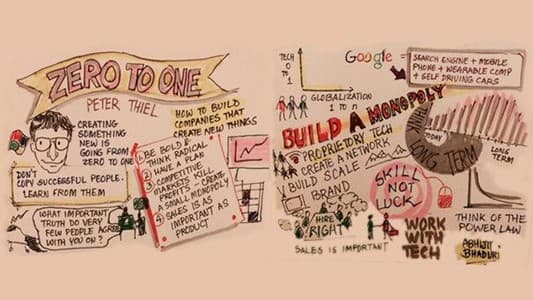 ZERO TO ONE
PETER THIEL
CREATING
SOMETHING
NEW IS
GOING FROM
ZERO TO ONE
DON'T
COPY SUCCESSFUL PEOPLE.
LEARN FROM THEM
WHAT IMPORTANT
TRUTH DO VERY
FEW PEOPLE AGREE
WITH YOU ON?
HOW TO BUILD
COMPANIES THAT
CREATE NEW THINGS
1 BE BOLD &
THINK RADICAL
2 HAVE A PLAN
3 COMPETITIVE
MARKETS KILL
PROFITS - CREATE
A SMALL MONOPOLY
4 SALES IS AS
IMPORTANT AS
PRODUCT
TECH
0 TO 1
GLOBALIZATION
1 TO n
Google =
SEARCH ENGINE + MOBILE
PHONE + WEARABLE COMP
+ SELF DRIVING CARS
BUILD A MONOPOLY
PROPRIETORY TECH
CREATE A NETWORK
BUILD SCALE
BRAND
THINK LONG TERM
TODAY
LONG
TERM
SKILL
NOT
LUCK
HIRE
RIGHT
SALES IS IMPORTANT
WORK
WITH
TECH
THINK OF THE
POWER LAW
ABHIJIT
BHADURI